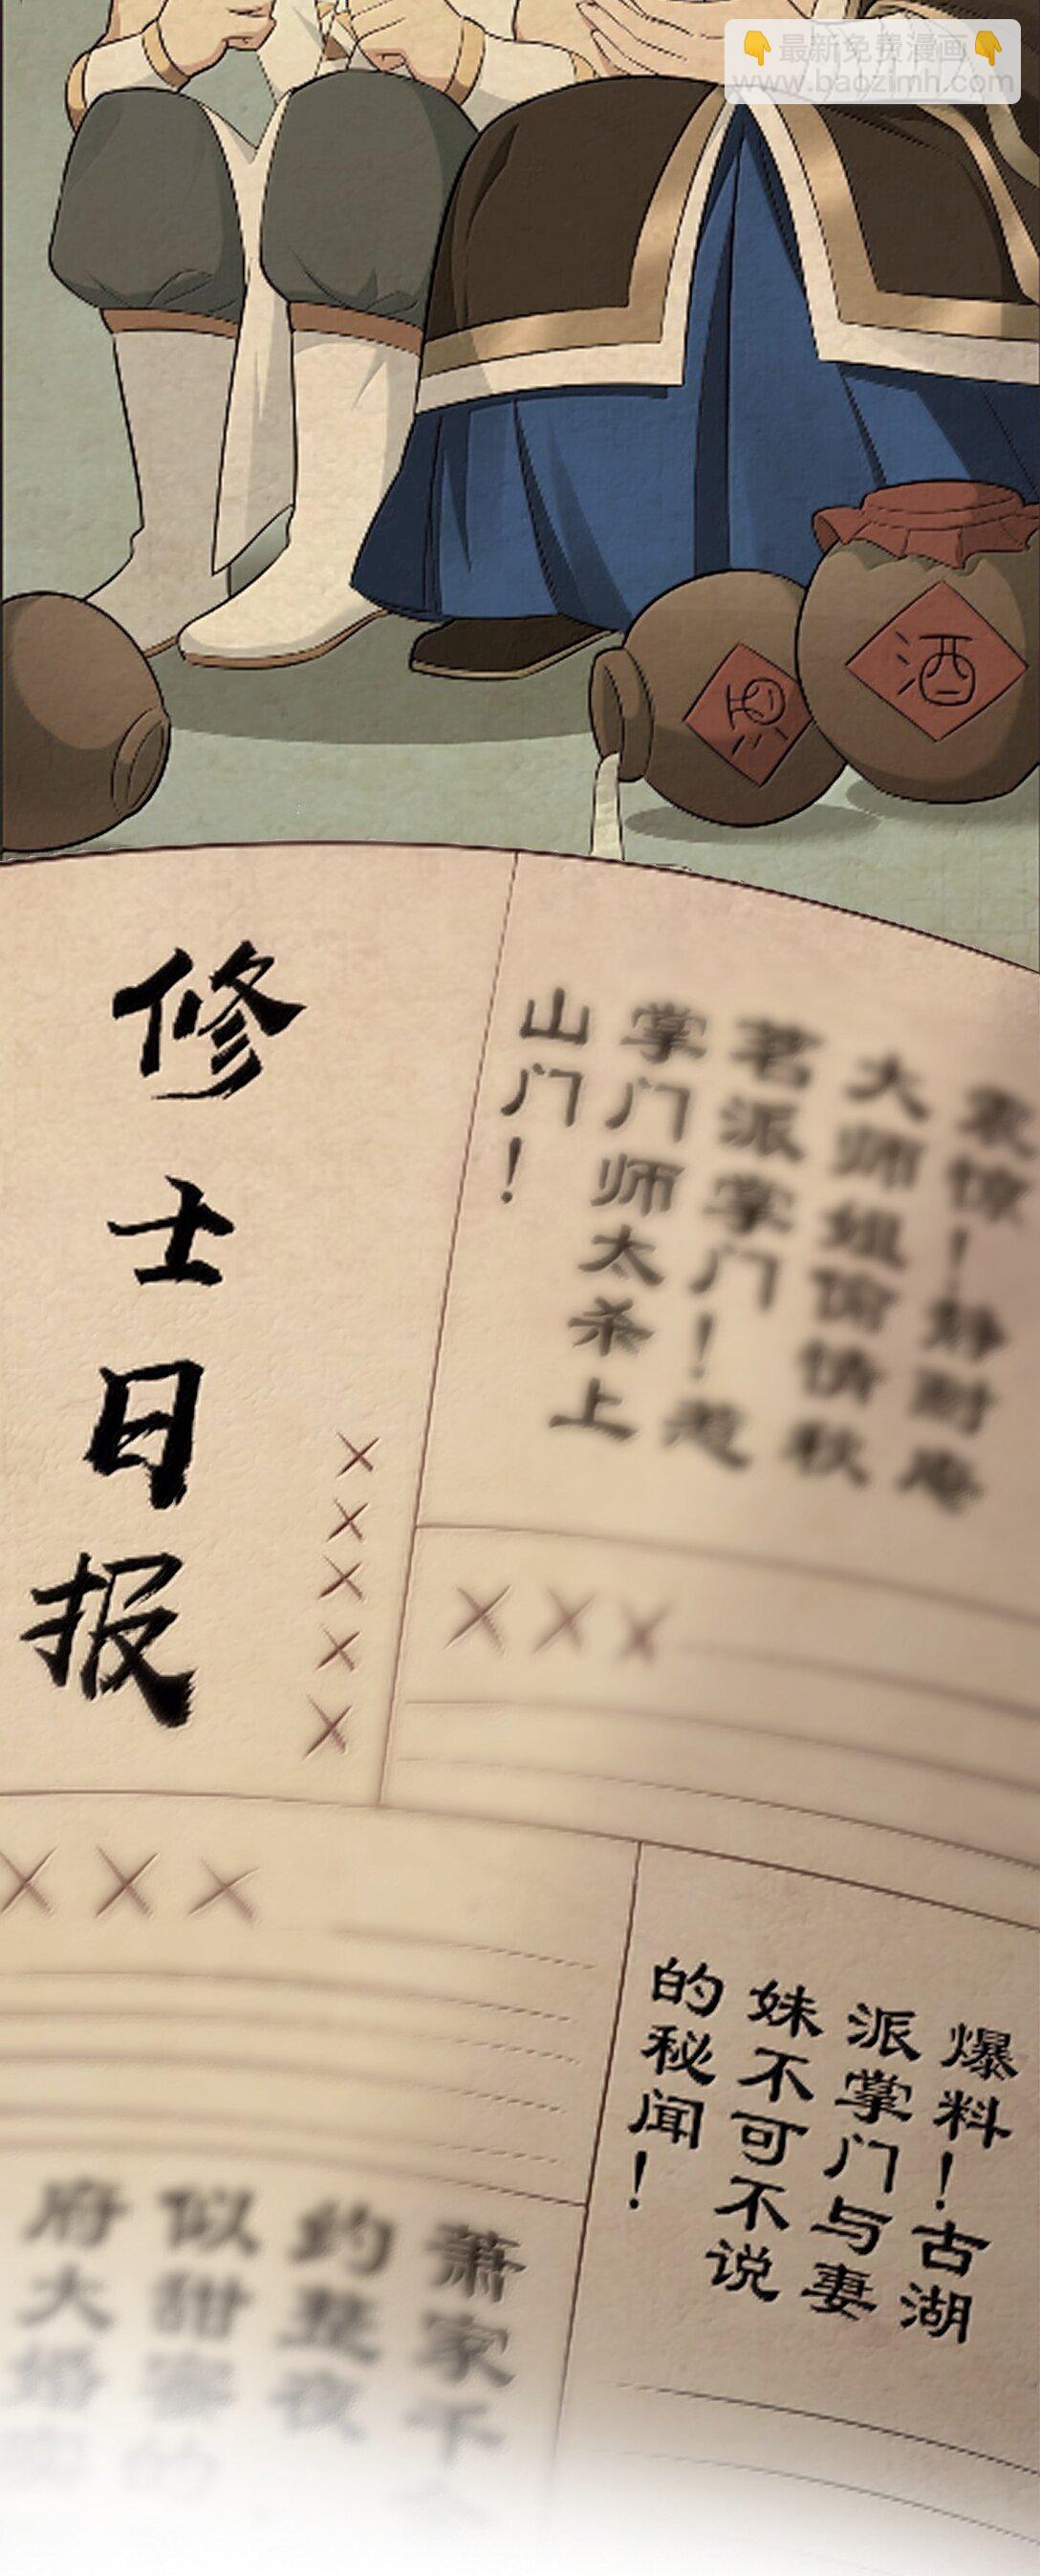 最新免费漫画
www.baozimh.com
酒
酒
修士日报
×××××
大师姐偷情秋
茗派掌门！惹
掌门师太杀上
山门！
×××
×××
爆料！古湖
派掌门与妻
妹不可不说
的秘闻！
萧家千